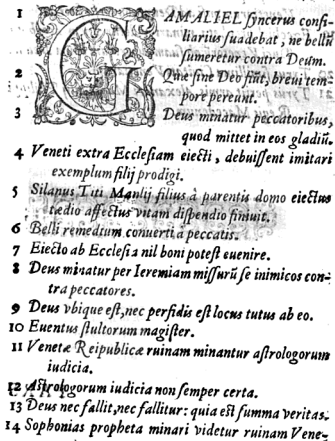 1 GAMALIEL syncerus consi-
liarius suadebat, ne bellũ
sumeretur contra Deum.
2 Quæ sine Deo fiũt, brevi tem-
pore pereunt.
3 Deus minatur peccatoribus,
quod mittet in eos gladiũ.
4 Veneti extra Ecclesiam eiecti, debuissent imitari
exemplum filij prodigi.
5 Silanus Titi Manlij filius à parentis domo eiectus
tædio affectus vitam dispendio finiuit.
6 Belli remedium conuerti a peccatis.
7 Eiecto ab Ecclesia nil boni potest euenire.
8 Deus minatur per Ieremiam missurũ se inimicos con-
tra peccatores.
9 Deus vbique est, nec perfidis est locus tutus ab eo.
10 Euentus stultorum magister.
11 Venetæ Reipublicæ ruinam minantur astrologorum
iudicia.
12 Astrologorum iudicia non semper certa.
13 Deus nec fallit, nec fallitur: quia est summa veritas.
14 Sophonias propheta minari videtur ruinam Vene-